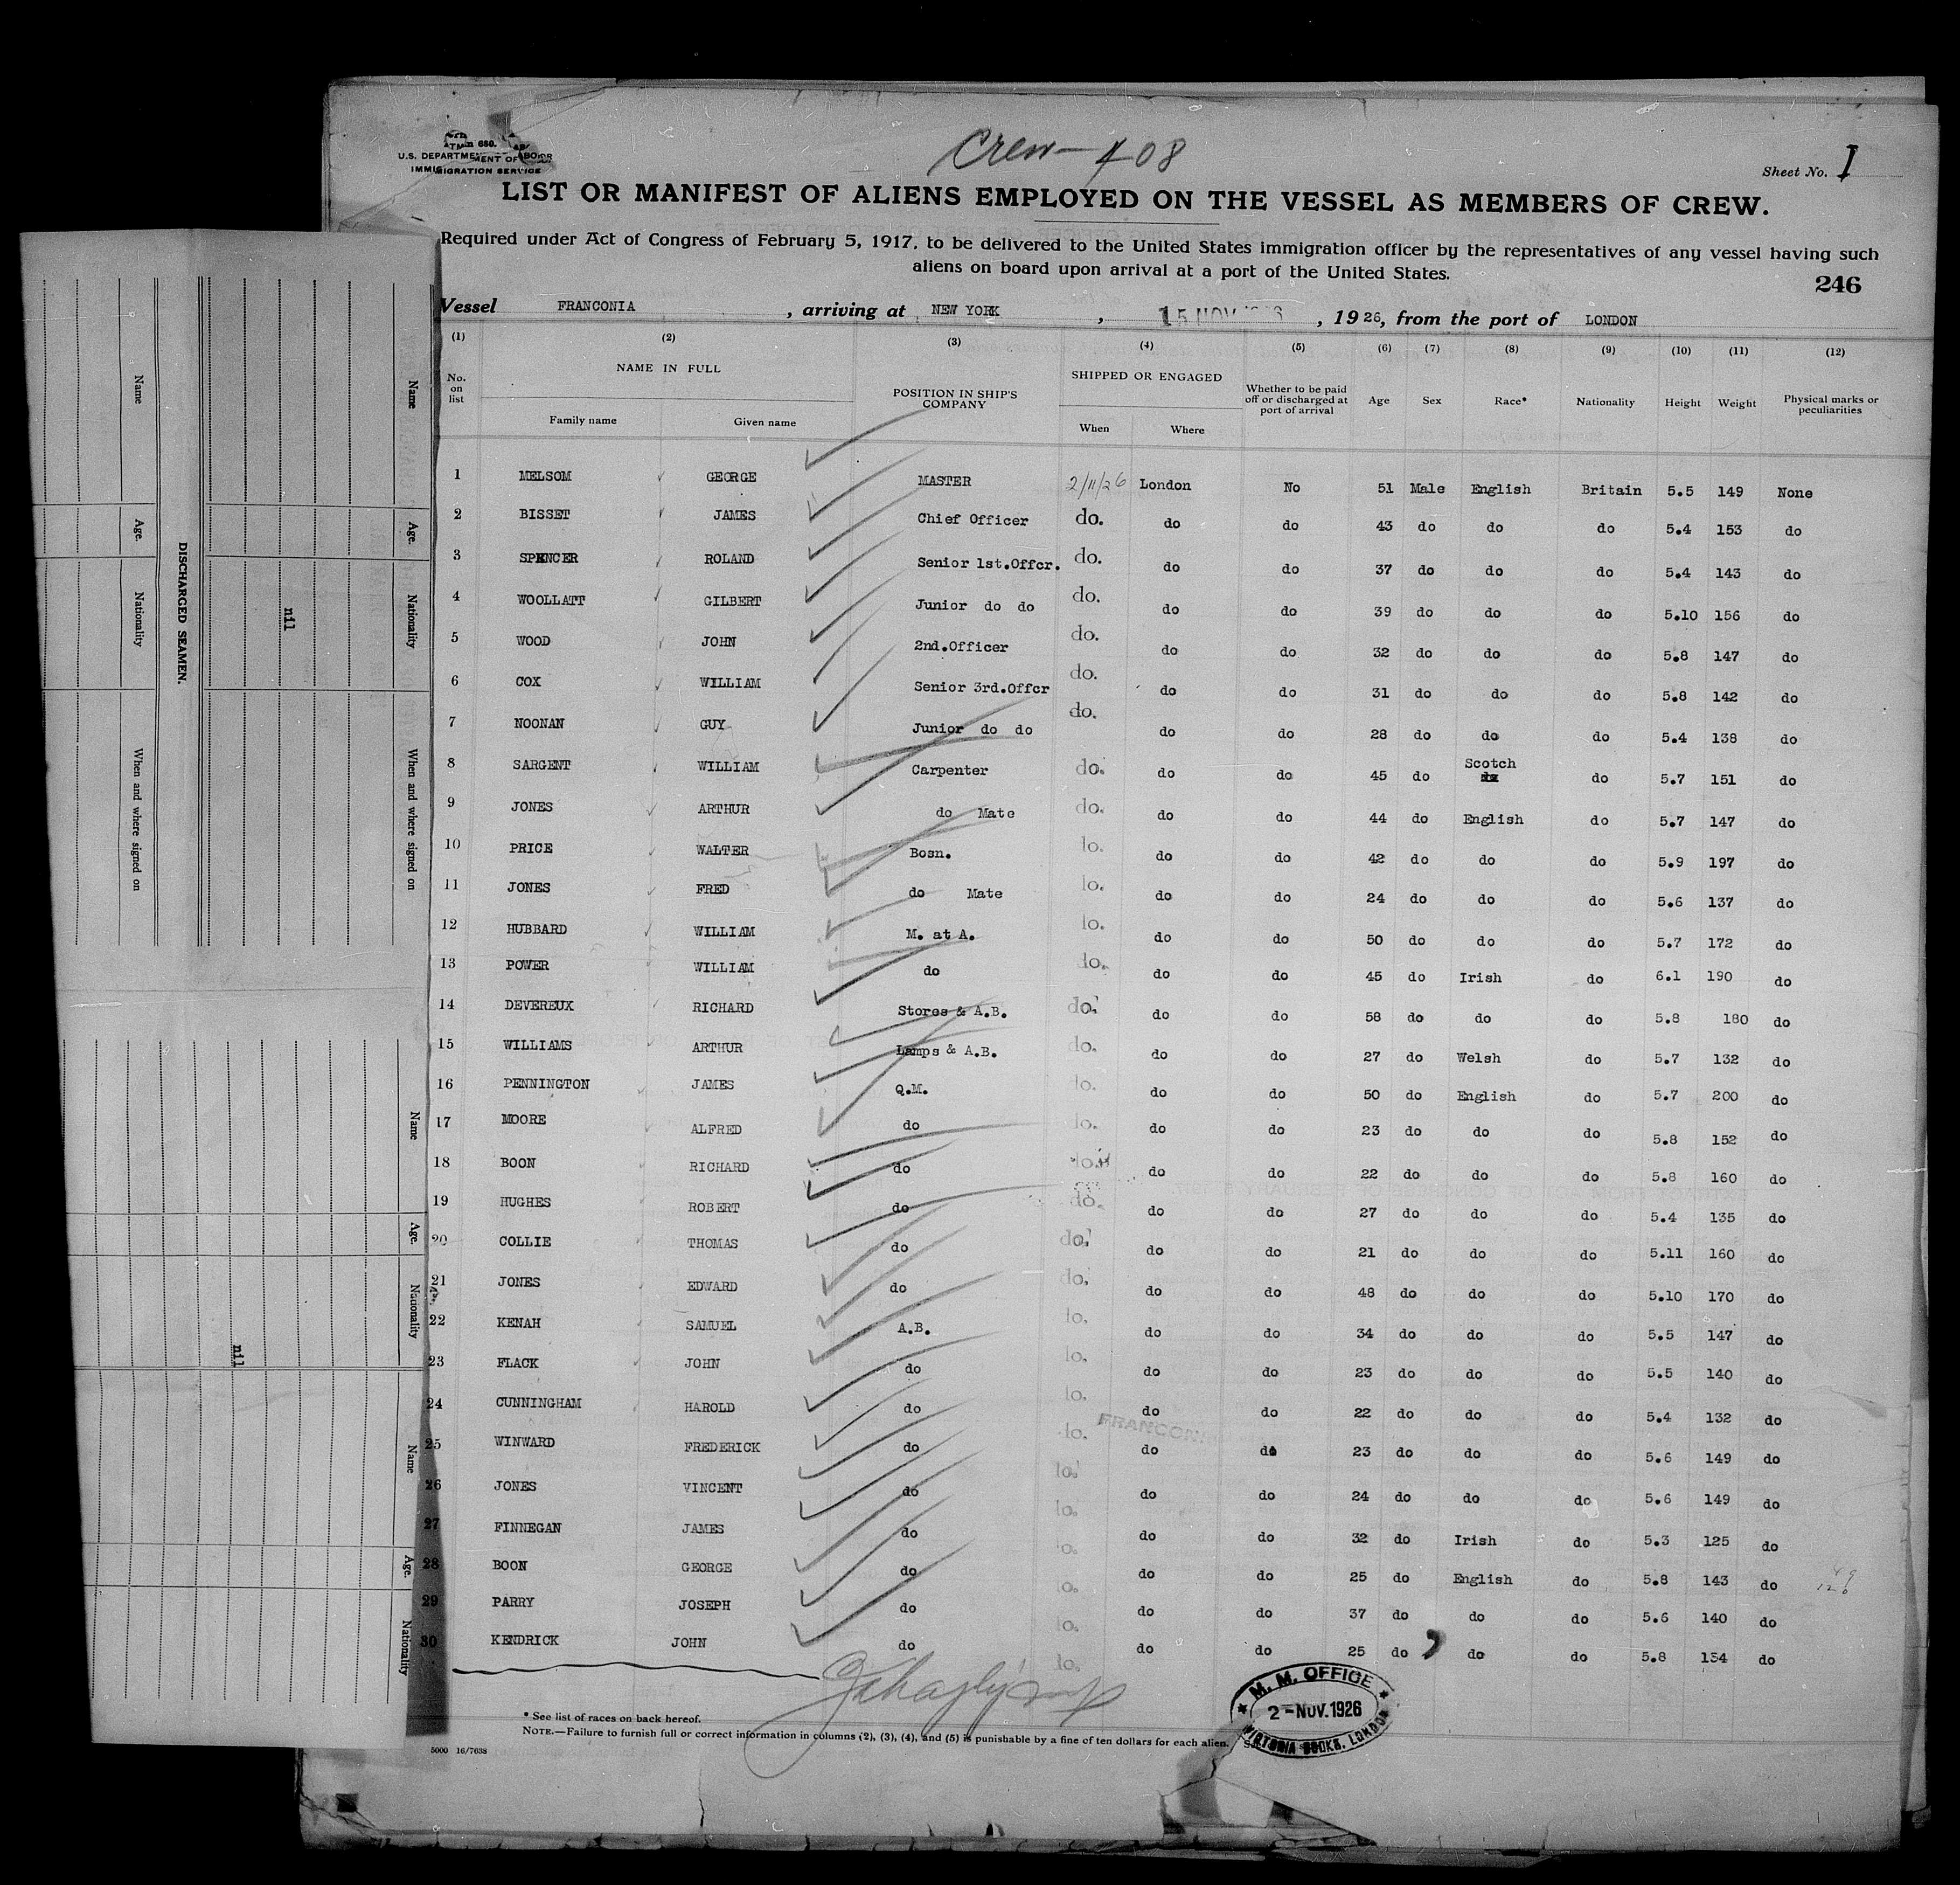 Crew - 408
U.S. DEPARTMENT OF LABOR
IMMIGRATION SERVICE
Sheet No. I
LIST OR MANIFEST OF ALIENS EMPLOYED ON THE VESSEL AS MEMBERS OF CREW.
Required under Act of Congress of February 5, 1917, to be delivered to the United States immigration officer by the representatives of any vessel having such
aliens on board upon arrival at a port of the United States.
246
Vessel FRANCONIA, arriving at NEW YORK, 15 NOV, 1926, from the port of LONDON
(1) (2) (3) (4) (5) (6) (7) (8) (9) (10) (11) (12)
No. on list NAME IN FULL Family name Given name POSITION IN SHIP'S COMPANY SHIPPED OR ENGAGED When Where Whether to be paid off or discharged at port of arrival Age Sex Race* Nationality Height Weight Physical marks or peculiarities
1 MELSOM GEORGE MASTER 2/11/26 London No 51 Male English Britain 5.5 149 None
2 BISSET JAMES Chief Officer do. do do 43 do do do 5.4 153 do
3 SPENCER ROLAND Senior 1st.Offcr. do. do do 37 do do do 5.4 143 do
4 WOOLLATT GILBERT Junior do do do. do do 39 do do do 5.10 156 do
5 WOOD JOHN 2nd.Officer do. do do 32 do do do 5.8 147 do
6 COX WILLIAM Senior 3rd.Offcr do. do do 31 do do do 5.8 142 do
7 NOONAN GUY Junior do do do. do do 28 do do do 5.4 138 do
8 SARGENT WILLIAM Carpenter do. do do 45 do Scotch do 5.7 151 do
9 JONES ARTHUR do Mate do. do do 44 do English do 5.7 147 do
10 PRICE WALTER Bosn. do. do do 42 do do do 5.9 197 do
11 JONES FRED do Mate do. do do 24 do do do 5.6 137 do
12 HUBBARD WILLIAM M. at A. do. do do 50 do do do 5.7 172 do
13 POWER WILLIAM do do. do do 45 do Irish do 6.1 190 do
14 DEVEREUX RICHARD Stores & A.B. do. do do 58 do do do 5.8 180 do
15 WILLIAMS ARTHUR Lamps & A.B. do. do do 27 do Welsh do 5.7 132 do
16 PENNINGTON JAMES Q.M. do. do do 50 do English do 5.7 200 do
17 MOORE ALFRED do do. do do 23 do do do 5.8 152 do
18 BOON RICHARD do do. do do 22 do do do 5.8 160 do
19 HUGHES ROBERT do do. do do 27 do do do 5.4 135 do
20 COLLIE THOMAS do do. do do 21 do do do 5.11 160 do
21 JONES EDWARD do do. do do 48 do do do 5.10 170 do
22 KENAH SAMUEL A.B. do. do do 34 do do do 5.5 147 do
23 FLACK JOHN do do. do do 23 do do do 5.5 140 do
24 CUNNINGHAM HAROLD do do. do do 22 do do do 5.4 132 do
25 WINWARD FREDERICK do do. do do 23 do do do 5.6 149 do
26 JONES VINCENT do do. do do 24 do do do 5.6 149 do
27 FINNEGAN JAMES do do. do do 32 do Irish do 5.3 125 do
28 BOON GEORGE do do. do do 25 do English do 5.8 143 do
29 PARRY JOSEPH do do. do do 37 do do do 5.6 140 do
30 KENDRICK JOHN do do. do do 25 do do do 5.8 134 do
FRANCONI
M. M. OFFICE
2-NOV.1926
VICTORIA DOCKS, LONDON
* See list of races on back hereof.
NOTE.—Failure to furnish full or correct information in columns (2), (3), (4), and (5) is punishable by a fine of ten dollars for each alien.
5000 16/7638
DISCHARGED SEAMEN.
Name Age. Nationality When and where signed on
Name Age. Nationality When and where signed on
nil
Name Age. Nationality
Name Age. Nationality
nil